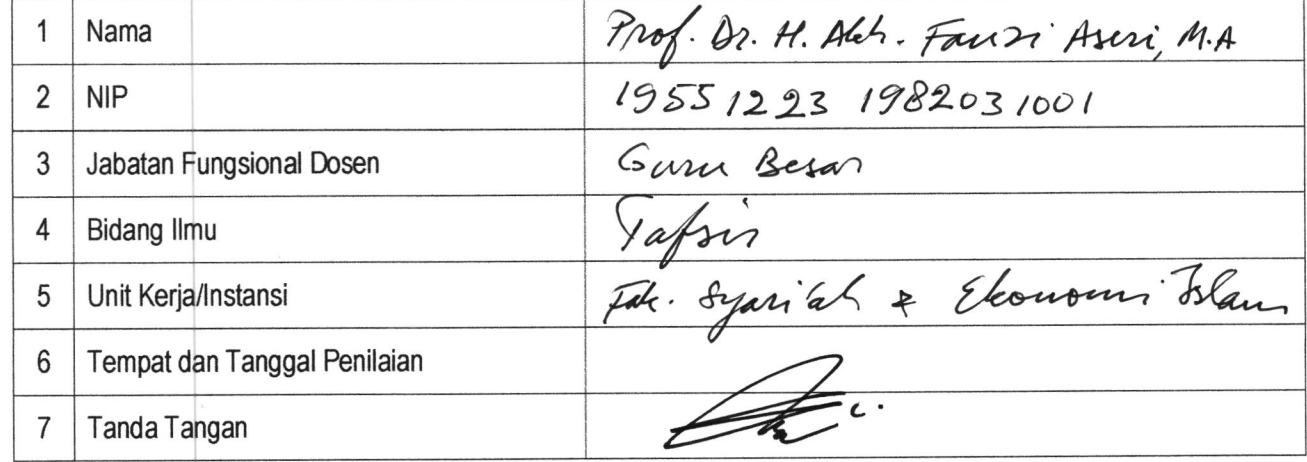 1 Nama Prof. Dr. H. Akh. Fauzi Aseri, M.A
2 NIP 19551223 198203 1001
3 Jabatan Fungsional Dosen Guru Besar
4 Bidang Ilmu Tafsir
5 Unit Kerja/Instansi Fak. Syari'ah & Ekonomi Islam
6 Tempat dan Tanggal Penilaian
7 Tanda Tangan